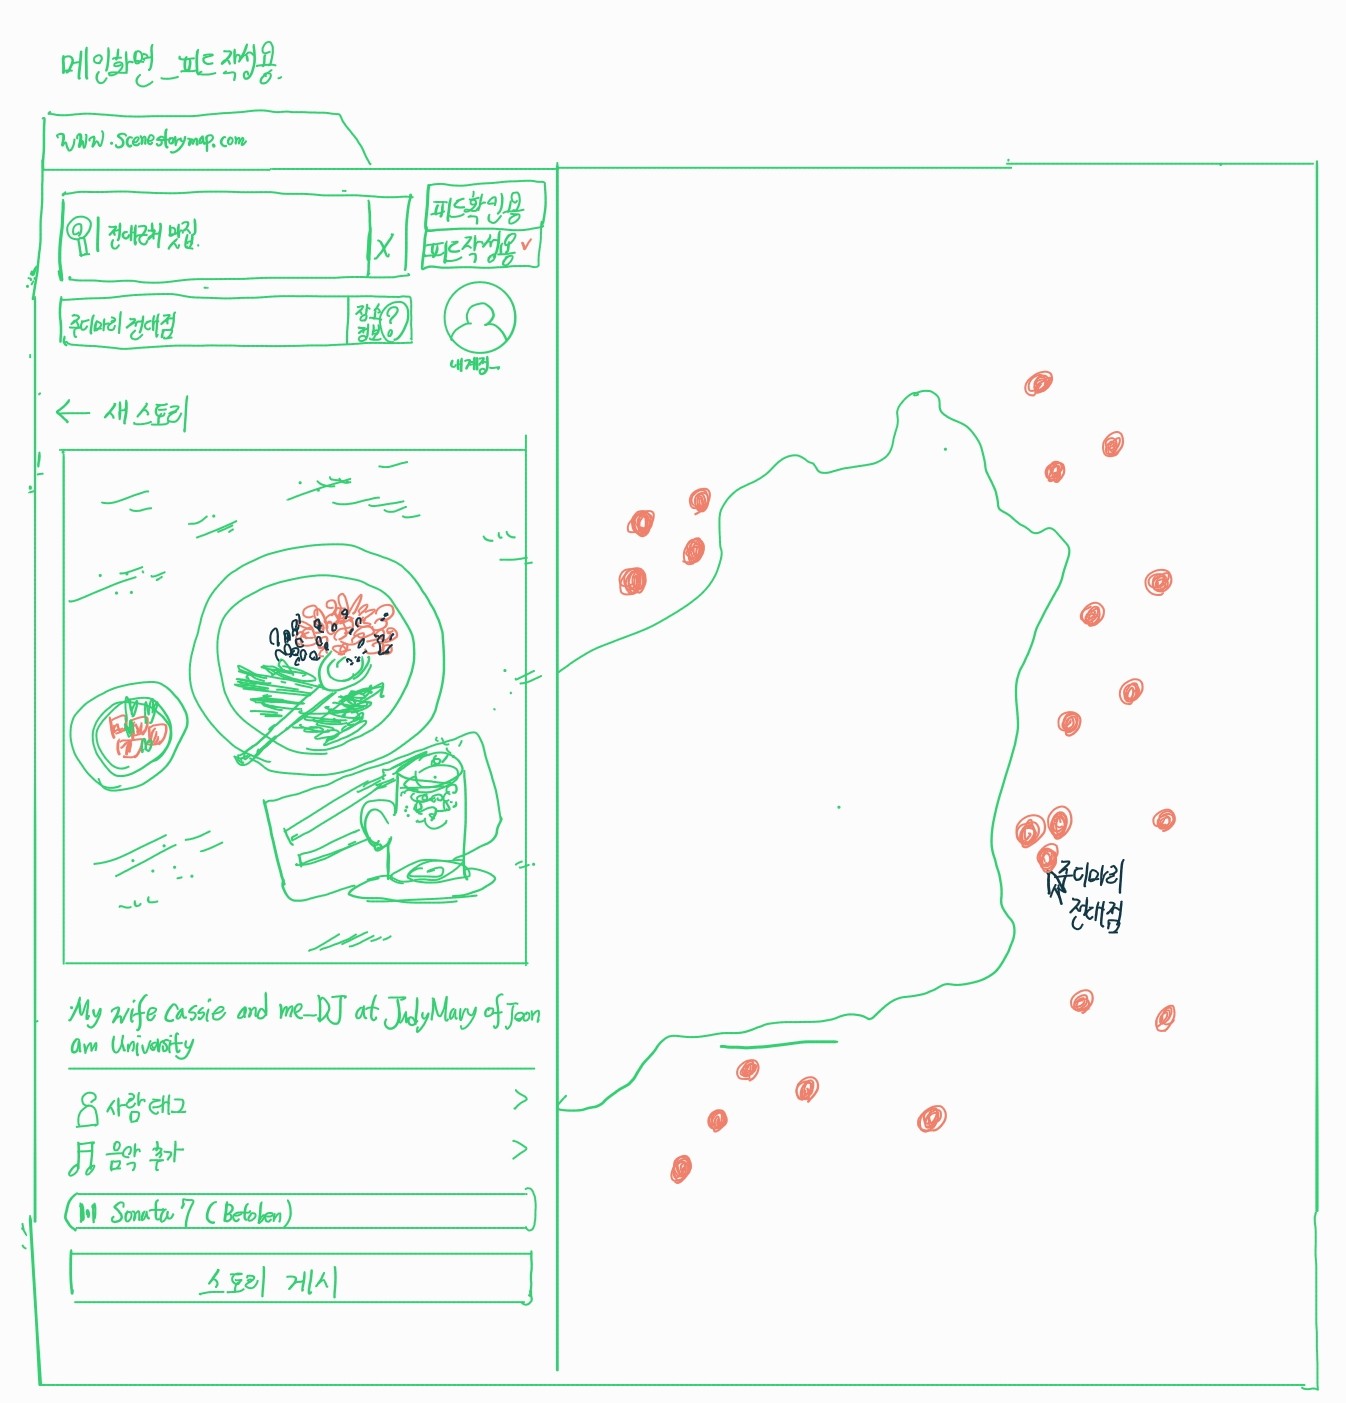 메인화면_피드 작성용.
www.scenestorymap.com
전대근처 맛집.
X
피드확인용
피드작성용 ✓
쥬디마리 전대점
장소
정보?
내 계정_
← 새 스토리
My wife Cassie and me_DJ at JudyMary of Jeon
am University
사람 태그 >
음악 추가 >
Sonata 7 (Betoben)
스토리 게시
쥬디마리
전대점